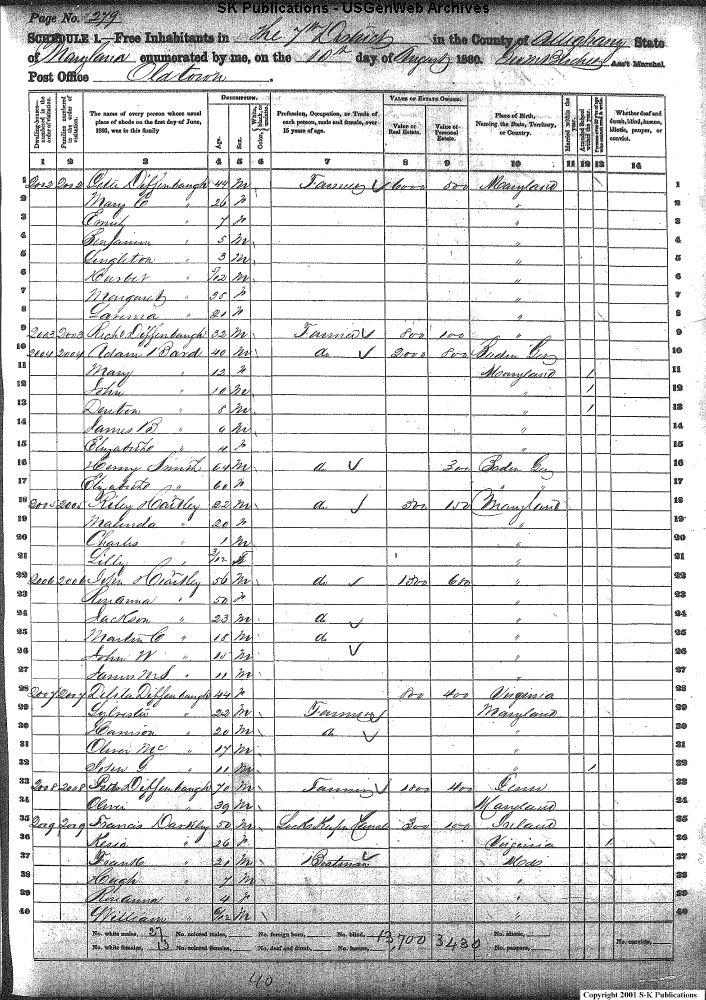 SK Publications - USGenWeb Archives
Page No. 279
SCHEDULE 1.—Free Inhabitants in The 7th District in the County of Alleghany State
of Maryland enumerated by me, on the 10th day of August 1860. Ass't Marshal.
Post Office Oldtown.
Dwelling-houses—numbered in the order of visitation.
Families numbered in the order of visitation.
The name of every person whose usual place of abode on the first day of June, 1860, was in this family
DESCRIPTION.
Age.
Sex.
Color, White, black, or mulatto.
Profession, Occupation, or Trade of each person, male and female, over 15 years of age.
VALUE OF ESTATE OWNED.
Value of Real Estate.
Value of Personal Estate.
Place of Birth, Naming the State, Territory, or Country.
Married within the year.
Attended School within the year.
Whether deaf and dumb, blind, insane, idiotic, pauper, or convict.
1 2 3 4 5 6 7 8 9 10 11 12 13 14
1 2002 2002 Peter Diffenbaugh 44 M Farmer 6000 500 Maryland 1
2 Mary C " 26 F " 2
3 Emily " 7 F " 3
4 Benjamin " 5 M " 4
5 Singleton " 3 M " 5
6 " M " 6
7 Margaret " 38 F " 7
8 " 21 F " 8
9 2003 2003 Diffenbaugh 32 M Farmer 800 100 " 9
10 2004 2004 Adam Bard 40 M do 2000 800 Baden Ger 10
11 Mary " 12 F Maryland 1 11
12 John " 10 M " 1 12
13 Denton " 8 M " 1 13
14 James B " 6 M " 14
15 Elizabeth " 4 F " 15
16 Henry Smith 64 M do 300 Baden Ger 16
17 Elizabeth " 60 F " " 17
18 2005 2005 Riley Hartley 22 M do 300 150 Maryland 18
19 Malinda " 20 F " 19
20 Charles " 1 M " 20
21 Lilly " 3/12 F " 21
22 2006 2006 John Hartley 56 M do 1500 680 " 22
23 Rosanna " 50 F " 23
24 Jackson " 23 M do " 24
25 Martin C " 18 M do " 25
26 John W " 15 M " 26
27 James " 11 M " 27
28 2007 2007 Diffenbaugh 44 F 800 400 Virginia 28
29 Sylvester " 22 M Farmer Maryland 29
30 Harrison " 20 M do " 30
31 Oliver Mc " 17 M " 31
32 John G " 11 M " 1 32
33 2008 2008 Peter Diffenbaugh 70 M Farming 1800 400 Penn 33
34 Oliver " 39 M Maryland 34
35 2009 2009 Francis Darkley 50 M Lock Keeper Canal 300 100 Ireland 35
36 Kesia " 26 F Virginia 1 36
37 Frank " 21 M Boatman Md 37
38 Hugh " 7 M " 38
39 Rosanna " 4 F " 39
40 William " 6/12 M " 40
No. white males, 27 No. colored males, No. foreign born, No. blind, 13,700 3480 No. idiotic, No. convicts,
No. white females, 13 No. colored females, No. deaf and dumb, No. insane, No. paupers,
40
Copyright 2001 S-K Publications